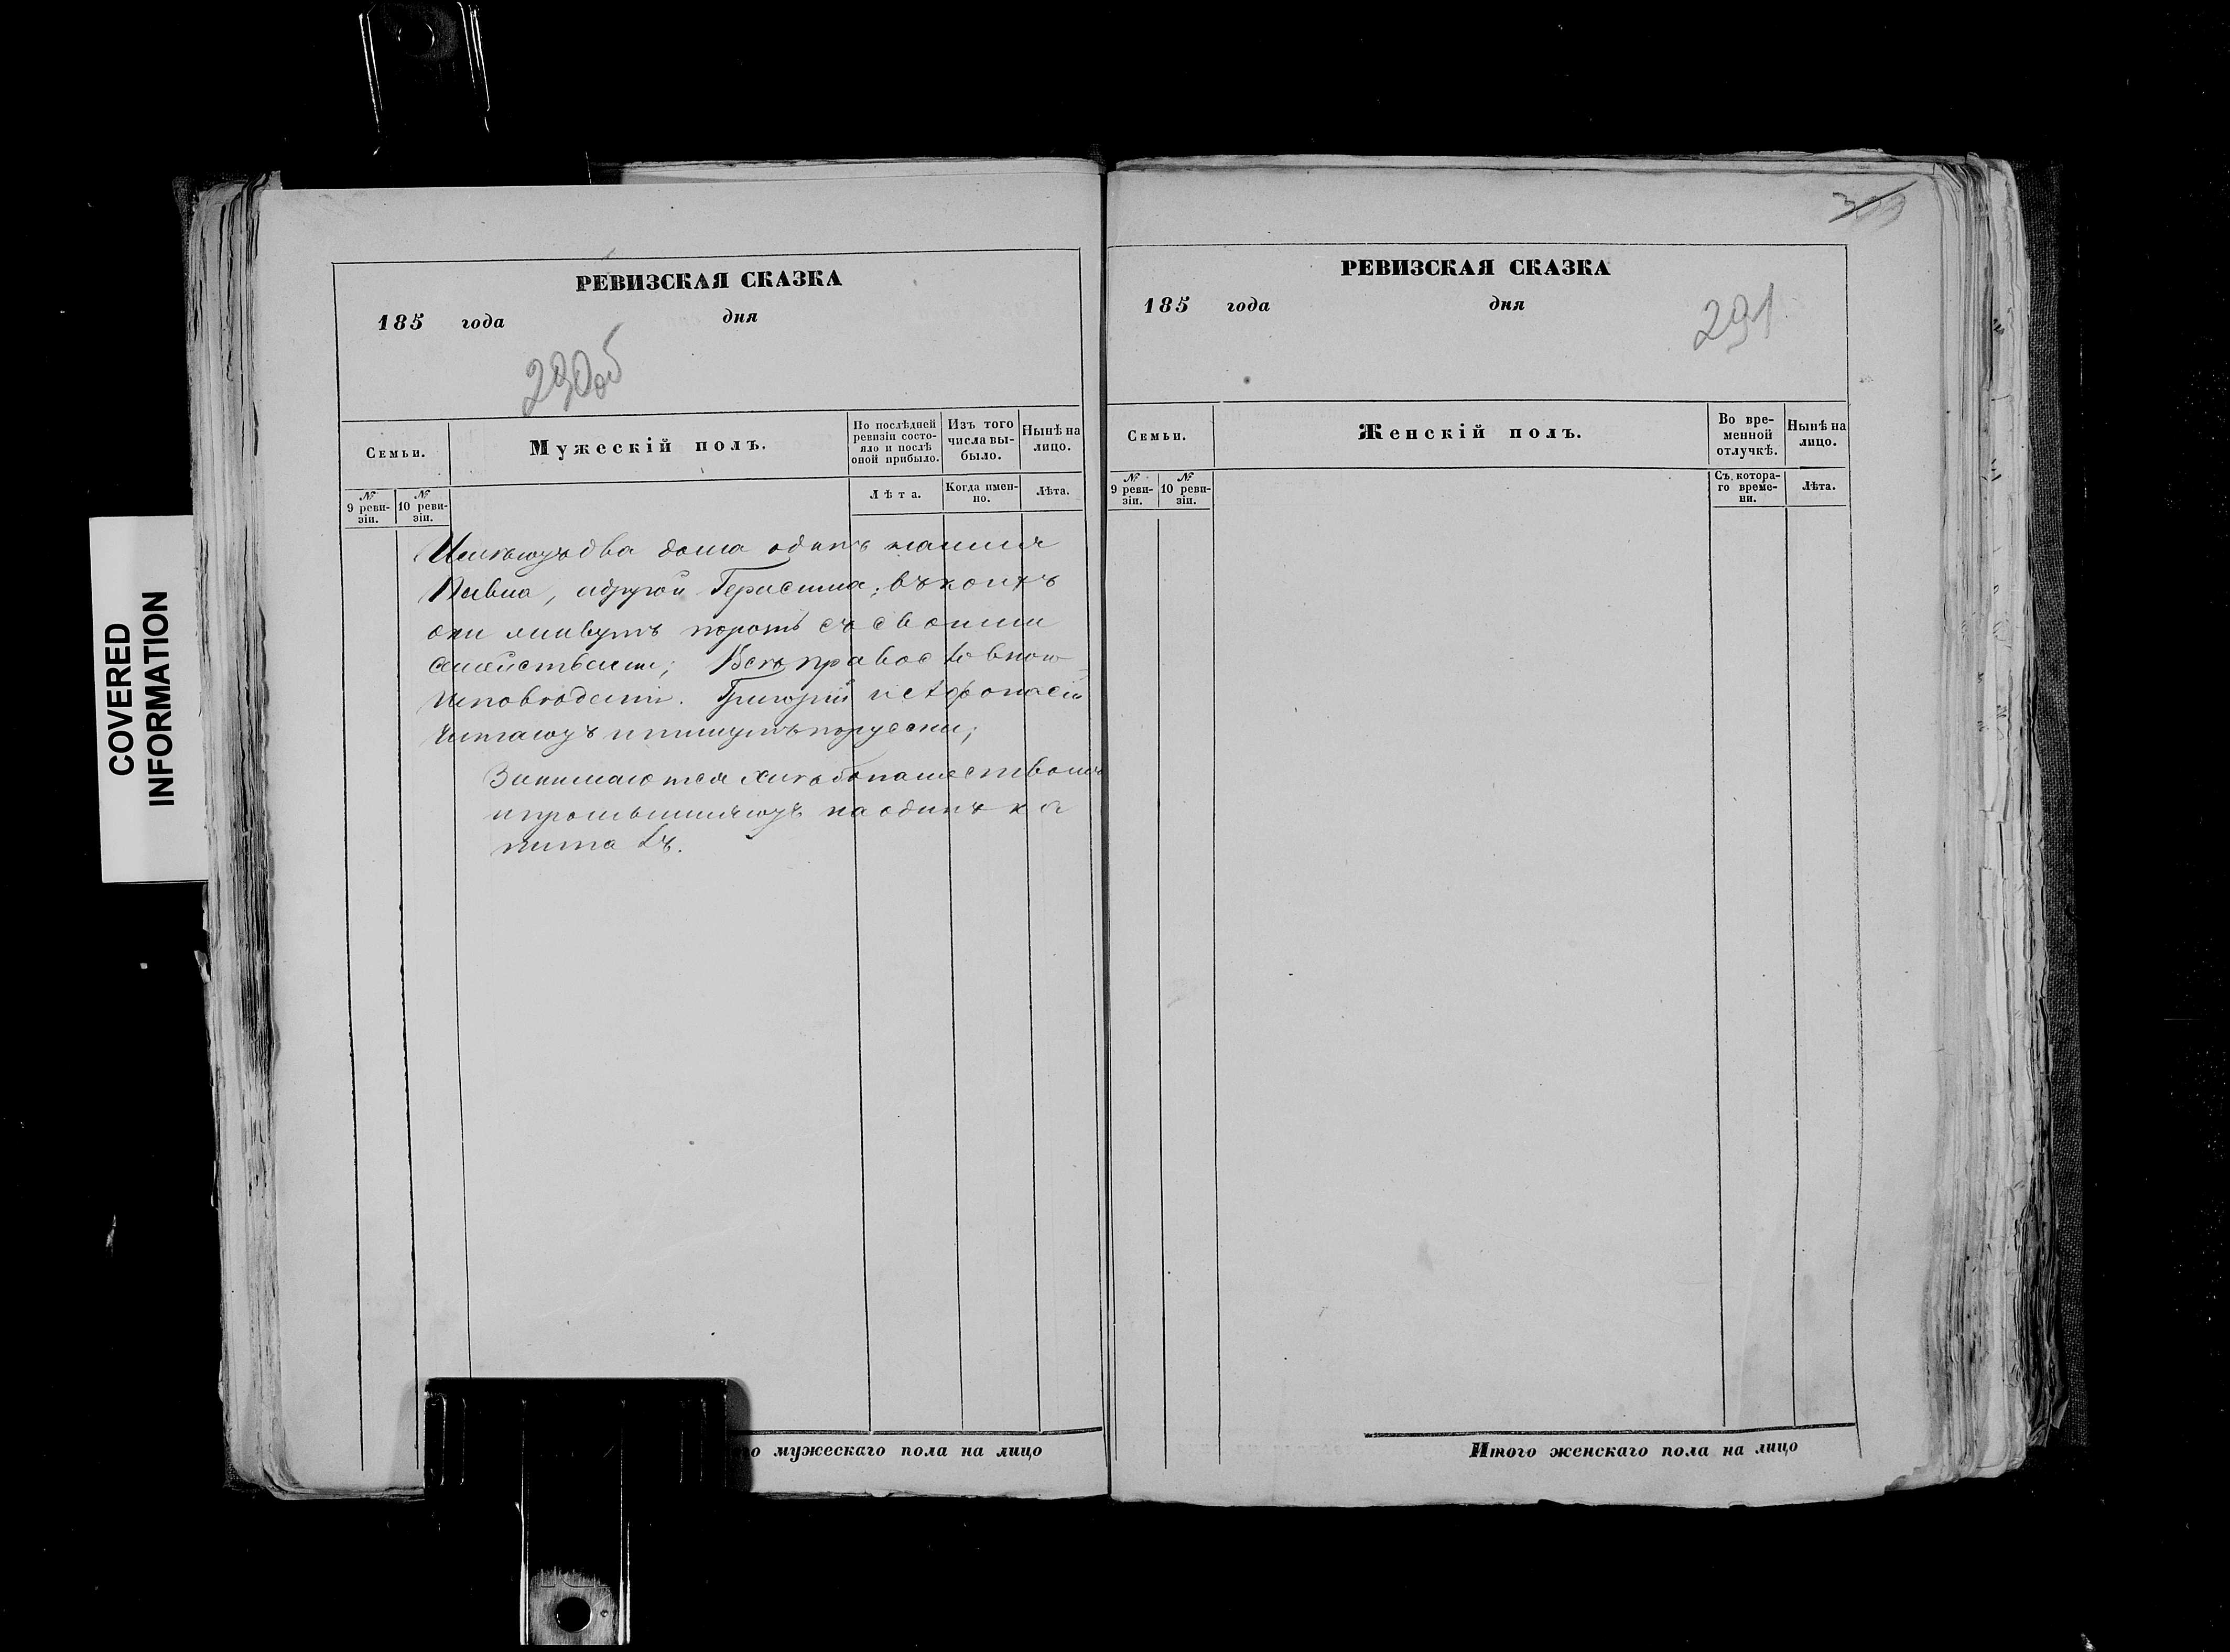 COVERED
INFORMATION
РЕВИЗСКАЯ СКАЗКА
185 года дня
290об
Семьи.
Мужескій полъ.
По послѣдней ревизіи состояло и послѣ оной прибыло.
Изъ того числа выбыло.
Нынѣ на лицо.
№ 9 ревизіи.
№ 10 ревизіи.
Лѣта.
Когда именно.
Лѣта.
Имѣюхъ два дома одинъ
Павла, адругой Герасима; въ коихъ
они живутъ порознь съ своими
семействами; Всѣ православною
исповѣдани. Григорій и Афонасій
читаюхъ и пишутъ поруски;
Занимаются хлѣбопашествомъ
и промышляюхъ на одинъ ка
питалъ.
о мужескаго пола на лицо
РЕВИЗСКАЯ СКАЗКА
185 года дня
291
Семьи.
Женскій полъ.
Во временной отлучкѣ.
Нынѣ на лицо.
№ 9 ревизіи.
№ 10 ревизіи.
Съ котораго времени.
Лѣта.
Итого женскаго пола на лицо